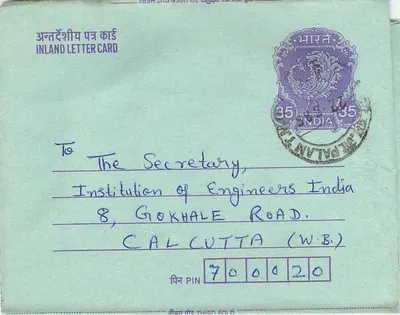 अन्तर्देशीय पत्र कार्ड
INLAND LETTER CARD
भारत
35 35
INDIA
PALAM
To
The Secretary,
Institution of Engineers India
8, GOKHALE ROAD.
CALCUTTA (W.B.)
पिन PIN 700020
THIRD FOLD